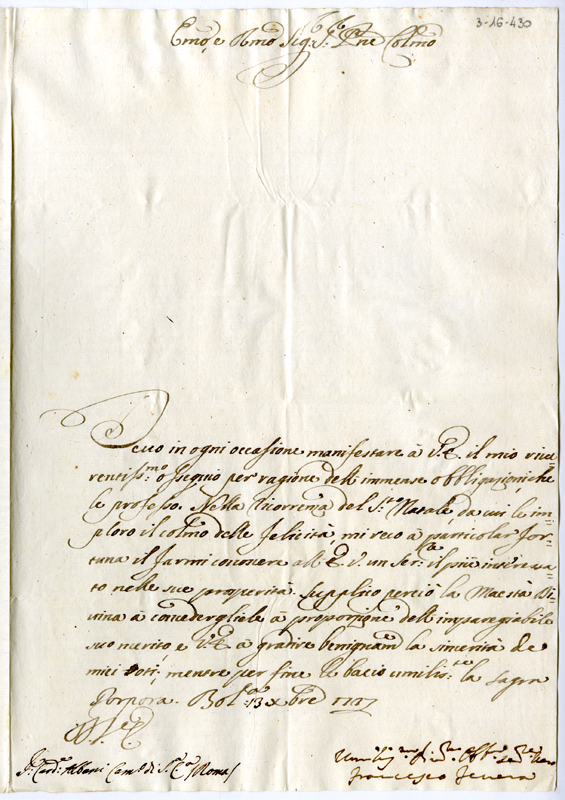 3-16-430
Emo, e Rmo Sig.r Pne Colmo
Devo in ogni occasione manifestare à V.E. il mio rive=
rentiss:mo ossequio per ragione dell' immense obbligazioni, che
le professo. Nella ricorrenza del S.mo Natale, da cui le im=
ploro il colmo delle felicità, mi reco à particolar for=
tuna il farmi conoscere all' E.V. un Ser.re il più interessa=
to nelle sue prosperità. Supplico perciò la Maestà Di=
vina à concedergliele à proporzione dell' impareggiabile
suo merito e V.E. à gradire benignam.te la sincerità de
miei voti. mentre per fine le bacio umilis:te la Sagra
Porpora. Bol:a 13 Xbre 1717
S.r Card: Albani Cam:o di S.ta C.a /Roma/
Francesco